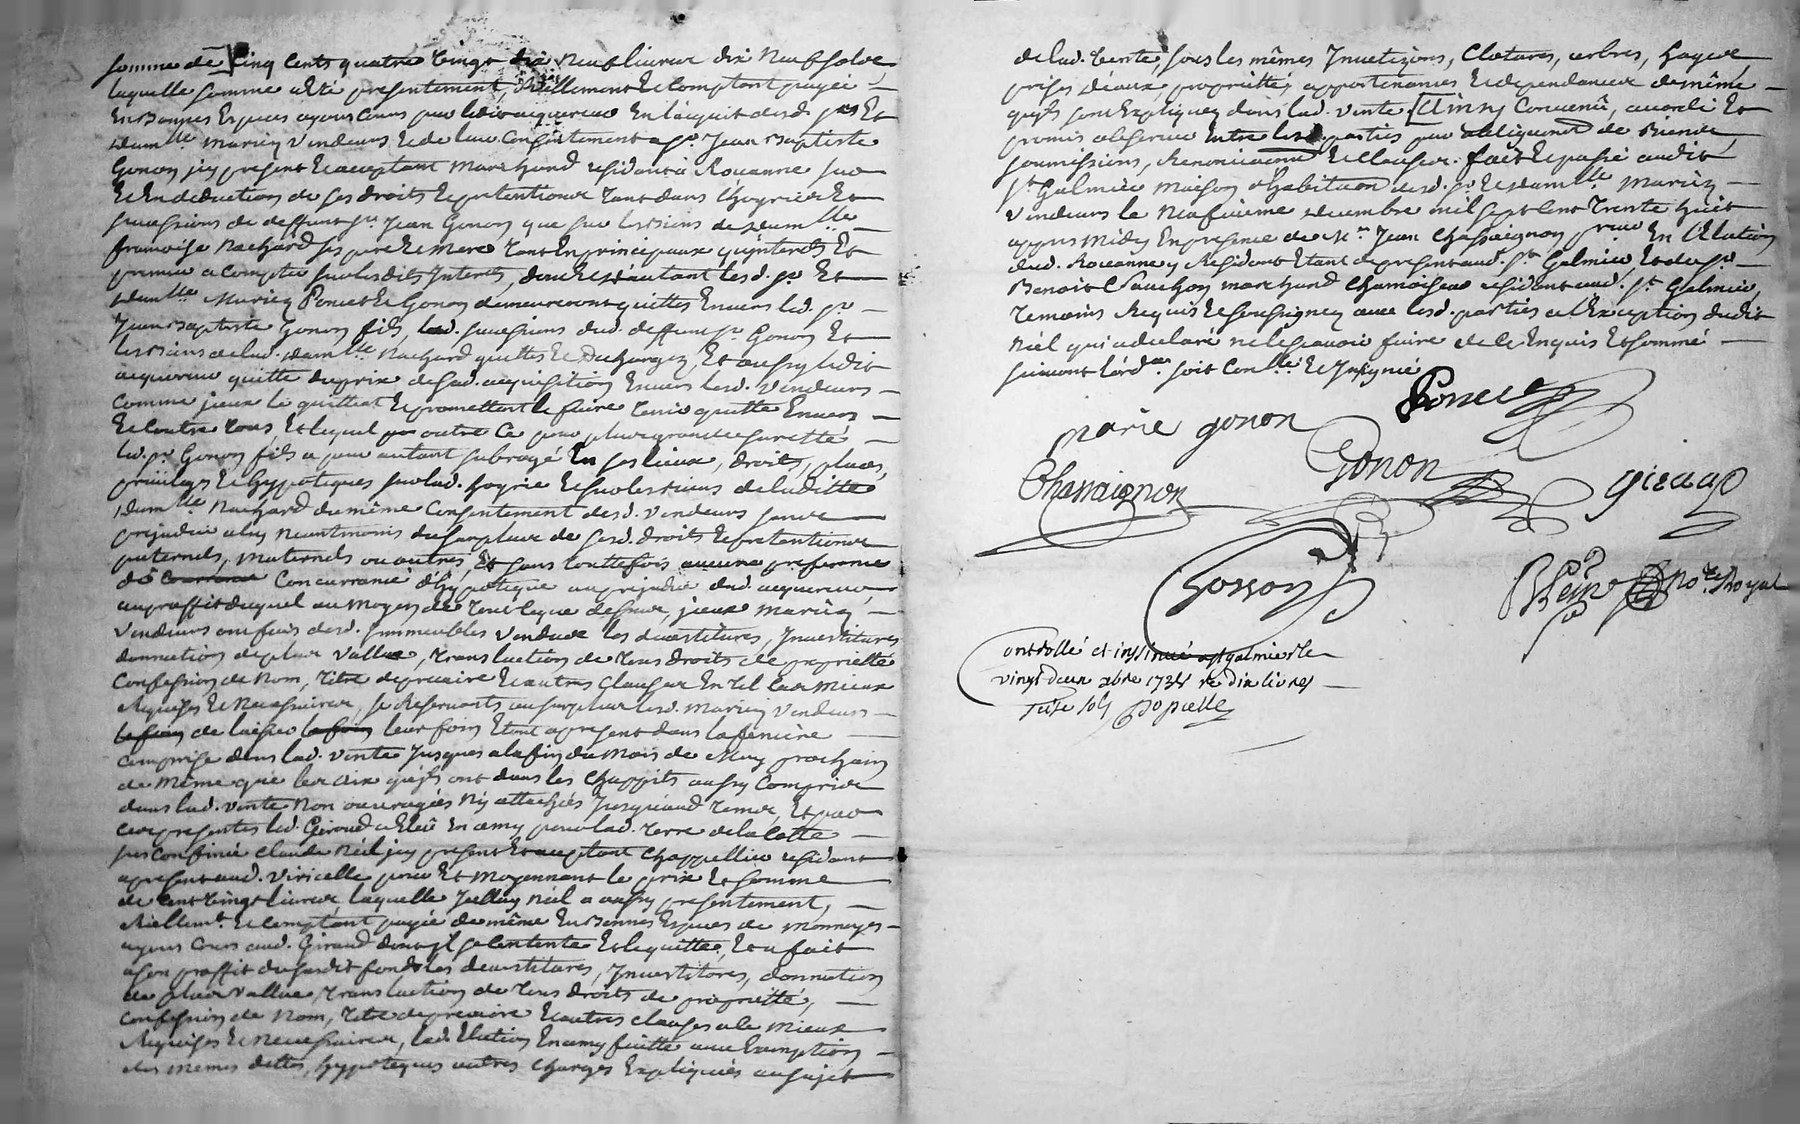 somme de Cinq Cents quatre vingt dix Neuf livres dix Neuf sols,
laquelle somme a été presentement, Réellement et Comptant payée
En bonnes Especes ayant Cours par ledit acquereur En l'acquit desd. srs Et
dam.lle Mariez Vendeurs et de leur Consentement a sr. Jean Baptiste
Gonon icy present et acceptant Marchand residant à Roüanne sur
Et En deduction de ses droits et pretentions tant dans l'hoyrie Et
successions de deffunt sr. Jean Gonon que sur les biens de dam.lle
françoise Rachard ses pere et mere tant En principaux qu'interets Et
premier a compte sur lesdits Interets, dont Et d'autant lesd. sr. Et
dam.lle Mariez Poncet et Gonon demeureront quittes Envers led. sr.
Jean Baptiste Gonon fils, lad. succession dud. deffunt sr. Gonon Et
les biens de lad. dam.lle Rachard quittes et Dechargez, Et aussy ledit
acquereur quitte du prix de sad. acquisition Envers lesd. Vendeurs
Comme jceux le quittent et promettent le faire tenir quitte Envers
Et Contre tous, Et lequel par outre Ce pour plus grande sureté
led. sr. Gonon fils a pour autant subrogé En ses lieux, droits, places,
privileges et hypoteques sur lad. hoyrie et sur les biens de laditte
dam.lle Rachard du même Consentement desd. Vendeurs sans
prejudice a luy Neantmoins du surplus de sesd. droits et pretentions
paternels, maternels ou autres, Et sans touttefois aucune preference
Concurrance d'hypoteque au prejudice dud. acquereur,
au proffit duquel au moyen de tout Ceque dessus, jceux Mariez
Vendeurs ont fait desd. Immeubles Vendus les devestitures, Investitures
donnation de plus vallue, translaction de tous droits de proprietté
Confession de Nom, titre de precaire et autres Clauses En tel Cas mieux
Requises et Necessaires, se Reservants au surplus lesd. Mariez Vendeurs
de laisser leur foin Etant a present dans la feniere
comprise dans lad. vente jusques a la fin du mois de May prochain
de même que les aix qu'jls ont dans les Chappits aussy Compris
dans lad. vente Non ouvragées Ny attachées jusqu'aud. temps, Et par
Ces presentes led. Giroud a Eleu En amy pour lad. terre de la Cotte
sus Confinée Claude Néel jcy present et acceptant Chappellier residant
a present aud. Viricelle pour Et Moyennant le prix Et somme
de Cent vingt livres laquelle jcelluy Néel a aussy presentement,
Réellem.t et Comptant payée de même En bonnes Especes de monnoyes
ayant Cours aud. Giraud dont jl se Contente Et le quitte, Et a fait
a son proffit du susdit fonds les devestitures, Investitures, donnation
de plus vallue, translaction de tous droits de proprietté,
Confession de Nom, titre de precaire et autres clauses a le mieux
Requises et Necessaires, lad. Election En amy faitte aux Exemptions
des mêmes dettes, hypoteques autres Charges Expliquées au sujet
de lad. Vente, sous les mêmes Invetizons, Clotures, arbres, hayes,
prises d'eaux, proprietté, appartenances Et dependances de même
qu'jls sont Expliquez dans lad. vente. Ainsy Convenû, accordé Et
promis observer Entre lesd. parties par obligation de Biens,
soumissions, Renonciations Et Clauses. fait Et passé audit
St. Galmier Maison d'habitation desd. sr. et dam.lle Mariez
Vendeurs le Neufvieme decembre mil sept Cent trente huit
apprès Midy En presence de Me. Jean Chassaignon pr.eur En l'Election
dud. Roüanne y Residant Etant de present aud. St. Galmier, Et de sr.
Benoit Sauchon marchand Chamoiseur residant aud. St. Galmier,
temoins Requis et soussignez avec lesd. parties a l'Exception dudit
Néel qui a declaré ne le sçavoir faire de Ce Enquis Et sommé
suivant l'ord.ce soit Con.llé et Insinué
Poncet
marie gonon
Chassaignon
Gonon
giraud
No.re Royal
Controllé et insinué a st galmier le
vingt deux xbre 1738 re dix livres
seize sols Popielle